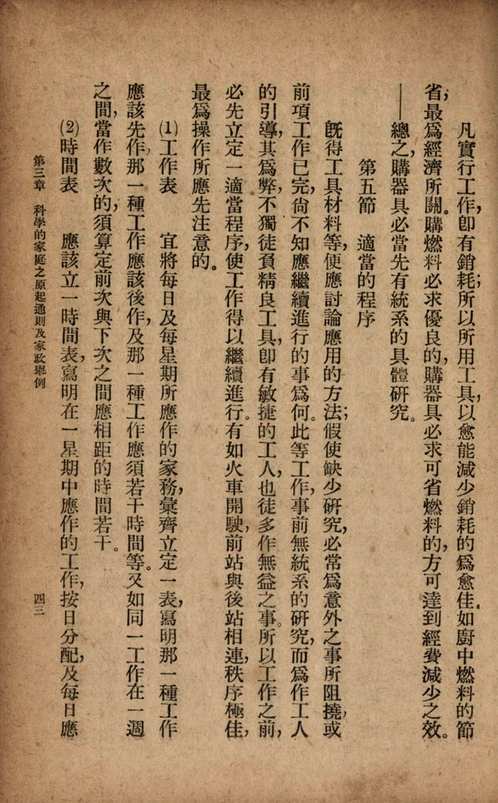 凡實行工作，卽有銷耗；所以所用工具，以愈能減少銷耗的爲愈佳。如廚中燃料的節
省，最爲經濟所關。購燃料必求優良的，購器具必求可省燃料的，方可達到經費減少之效。
——總之，購器具必當先有統系的具體硏究。
第五節　適當的程序
旣得工具材料等，便應討論應用的方法；假使缺少硏究，必常爲意外之事所阻撓，或
前項工作已完，尙不知應繼續進行的事爲何。此等工作事前無統系的硏究，而爲作工人
的引導，其爲弊，不獨徒負精良工具，卽有敏捷的工人，也徒多作無益之事。所以工作之前，
必先立定一適當程序，使工作得以繼續進行。有如火車開駛，前站與後站相連，秩序極佳，
最爲操作所應先注意的。
(1)工作表　宜將每日及每星期所應作的家務，彙齊立定一表，寫明那一種工作
應該先作，那一種工作應該後作，及那一種工作應須若干時間等。又如同一工作在一週
之間，當作數次的，須算定前次與下次之間應相距的時間若干。
(2)時間表　應該立一時間表，寫明在一星期中應作的工作，按日分配，及每日應
第三章　科學的家庭之原起通則及家政舉例　四三